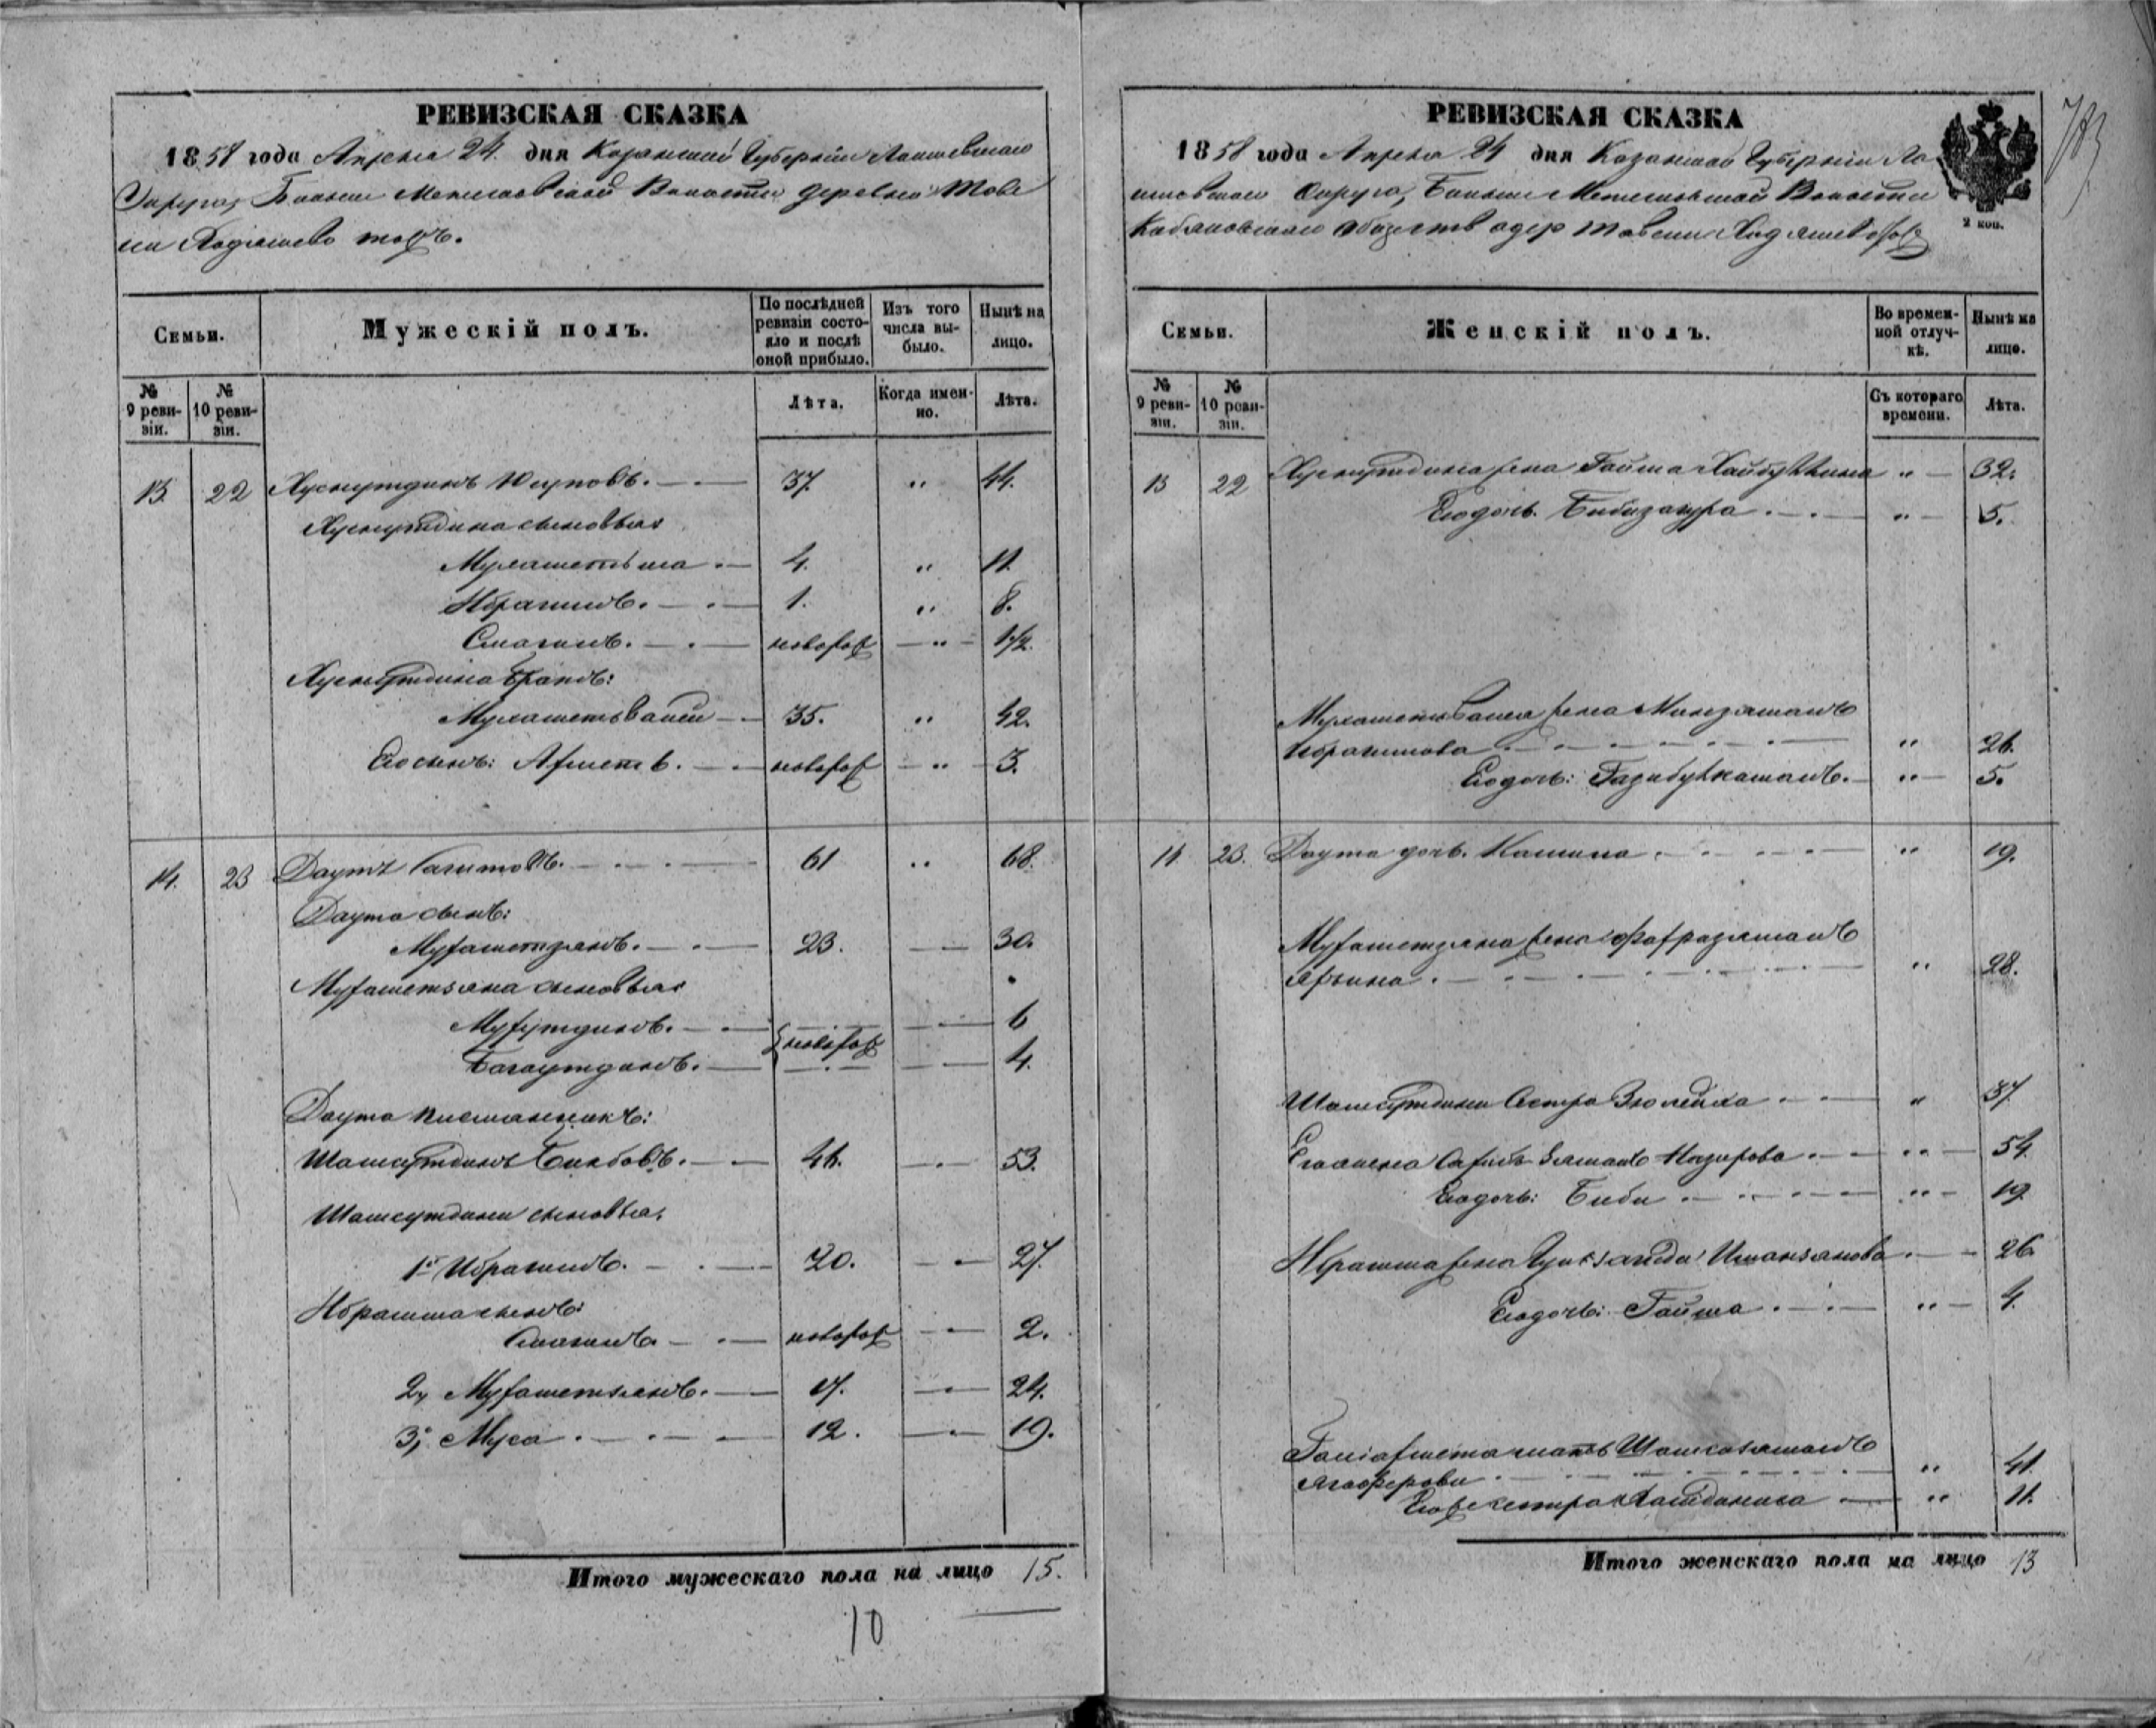 РЕВИЗСКАЯ СКАЗКА
1858 года Апреля 24 дня Казанской Губернии Лаишевскаго
Округа, Больше Метесковской Волости деревни Тове
ли Ходяшево тожъ.
Семьи.
Мужескій полъ.
По послѣдней ревизіи состояло и послѣ оной прибыло.
Изъ того числа выбыло.
Нынѣ на лицо.
№ 9 ревизіи.
№ 10 ревизіи.
Лѣта.
Когда именно.
Лѣта.
13. 22 Хуснутдинъ Юсуповъ. 37. " 44.
Хуснутдина сыновья
Мухаметьша 4. " 11.
Ибрагимъ. 1. " 8.
Смагилъ. новорож " 1/2.
Хуснутдина братъ:
Мухаметьвалей 35. " 42.
Его сынъ: Ахметъ. новорож " 3.
14. 23 Даутъ Сагитовъ. 61 " 68.
Даута сынъ:
Мухаметзянъ. 23. 30.
Мухаметзяна сыновья
Мухутдинъ. 6
новорож
Багаутдинъ. 4.
Даута племянникъ:
Шамсутдинъ Бикбовъ. 46. 53.
Шамсутдина сыновья,
1й Ибрагимъ. 20. 27.
Ибрагима сынъ:
Смагилъ новорож 2.
2, Мухаметзянъ. 17. 24.
3, Муса 12. 19.
Итого мужескаго пола на лицо 15.
10
РЕВИЗСКАЯ СКАЗКА
783
1858 года Апреля 24 дня Казанской Губерніи Ла
ишевскаго Округа, Больше Метесковской Волости
Кабяковскаго общества дер Товели Ходяшево тож
2 коп.
Семьи.
Женскій полъ.
Во временной отлучкѣ.
Нынѣ на лицо.
№ 9 ревизіи.
№ 10 ревизіи.
Съ котораго времени.
Лѣта.
13 22 Хуснутдина жена Гайша Хайбуллина " 32.
Его дочь. Бибизагура " 5.
Мухаметьвалея жена Минзямалъ
Ибрагимова " 26.
Его дочь: " 5.
14 23. Даута дочь. Камила " 19.
Мухаметзяна жена Фахразямалъ
" 28.
Шамсутдина сестра Зюлейха " 37
Назирова " 54
Его дочь: Биби " 19
Ибрагима жена Иманзянова 26
Его дочь: Гайша " 4.
мать Шамсизямалъ
" 41.
сестра " 11.
Итого женскаго пола на лицо 13